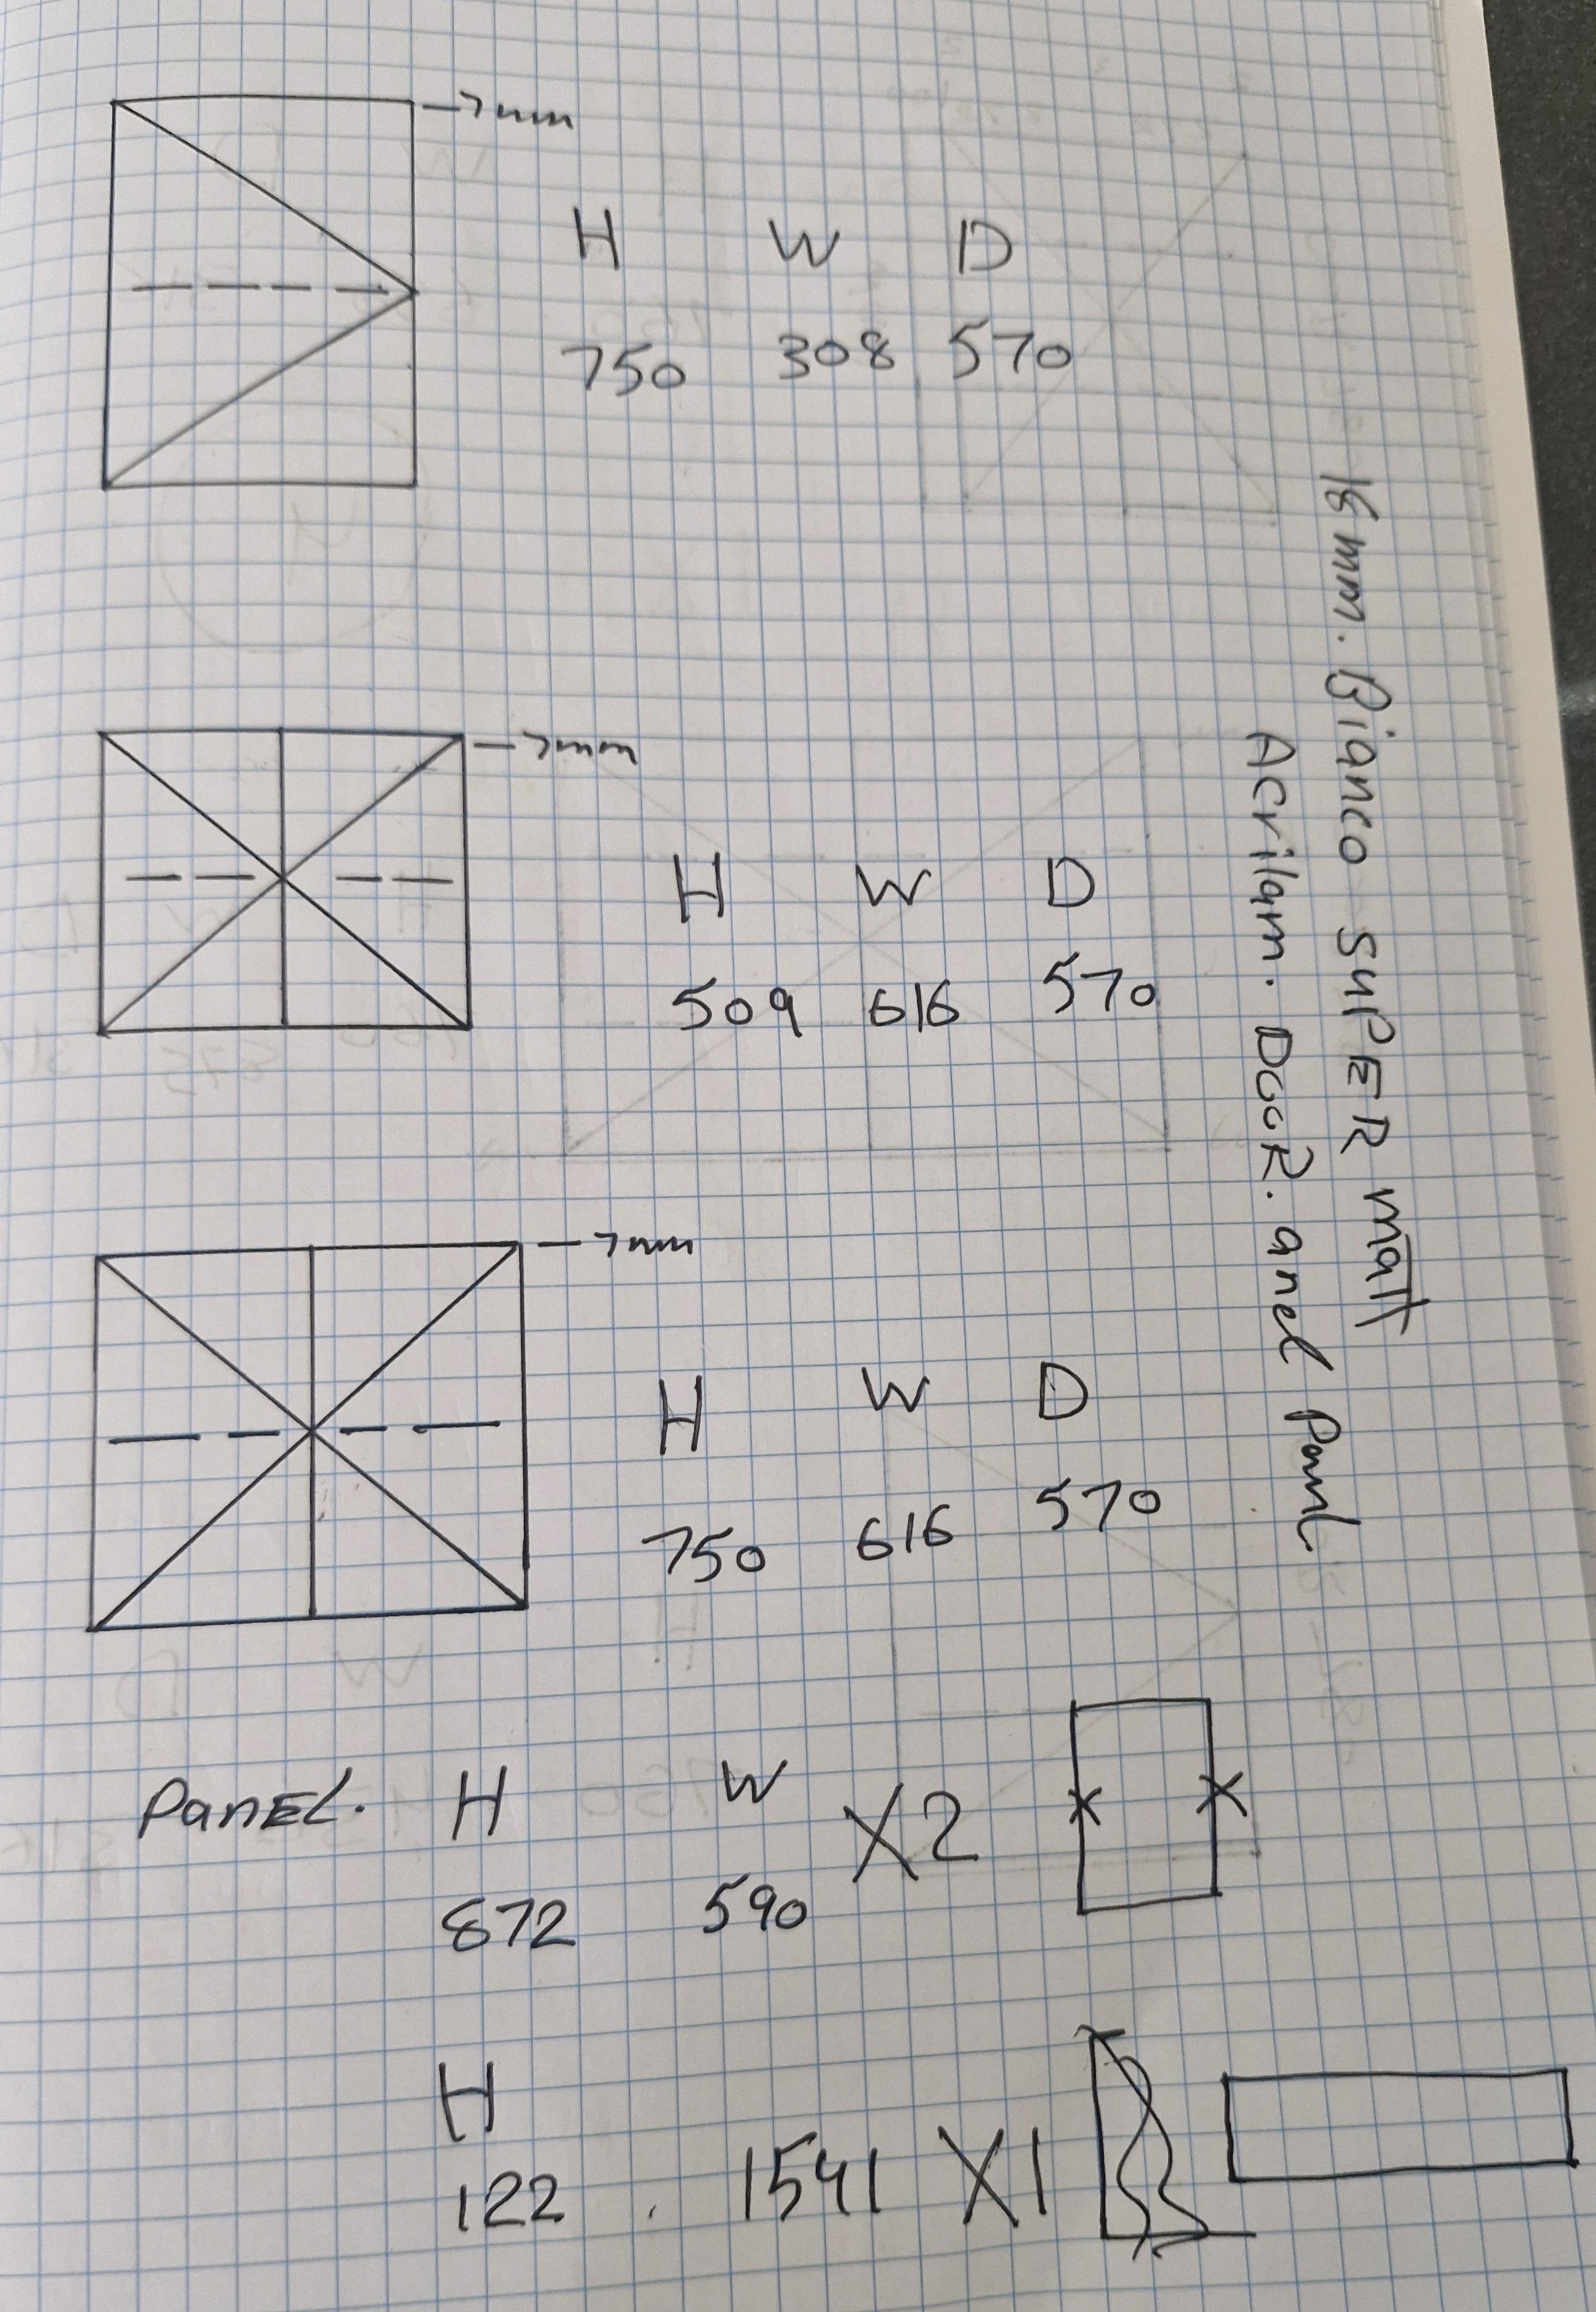 -7mm
H W D
750 308 570
-7mm
H W D
509 616 570
-7mm
H W D
750 616 570
PANEL. H W X2
872 590
H
122 . 1541 X1
18mm. Bianco SUPER matt
Acrilam. DOOR. anel Panl